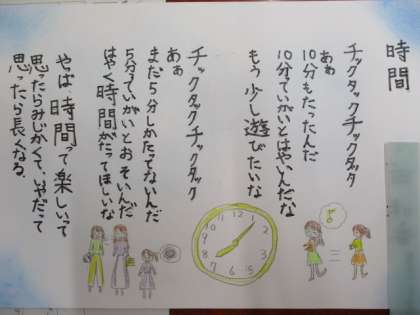 時間
チックタックチックタック
あぁ
10分もたったんだ
10分ていがいとはやいんだな
もう少し遊びたいな
チックタックチックタック
あぁ
まだ5分しかたってないんだ
5分っていがいとおそいんだ
はやく時間がたってほしいな
やっぱ時間って楽しいって
思ったらみじかくて、いやだって
思ったら長くなる。
12
1
2
3
4
5
6
7
8
9
10
11